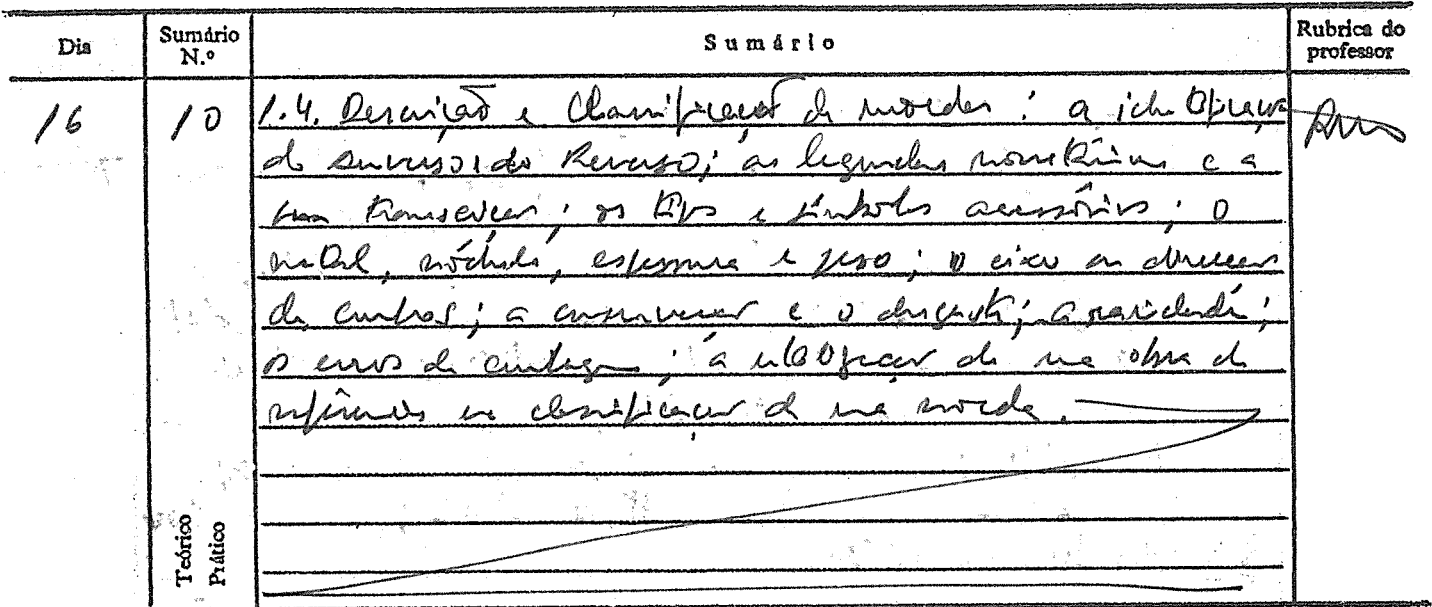 Dia Sumário N.º Sumário Rubrica do professor
16 10 1.4. Descrição e Classificação de moedas: a identificação
do anverso e do Reverso; as legendas monetárias e a
sua transcrição; os tipos e símbolos acessórios; o
metal, módulo, espessura e peso; o eixo ou direcção
de cunhos; a conservação e o desgaste; a raridade;
os erros de cunhagem; a utilização de uma obra de
referência na classificação de uma moeda.
Teórico
Prático